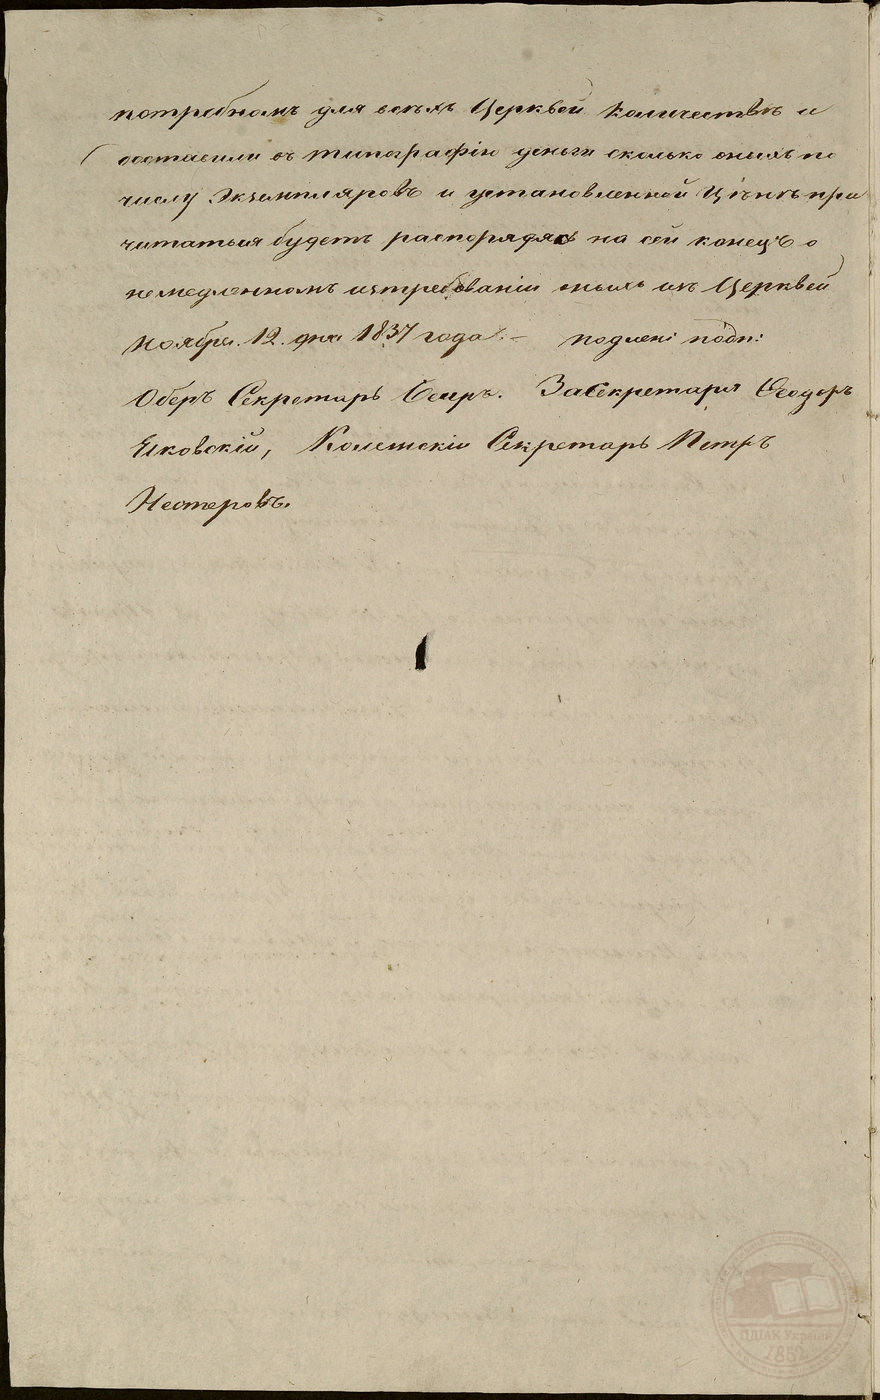 потребномъ для всѣхъ Церквей количествѣ и
доставили въ типографію деньги сколько оныхъ по
числу Экземпляровъ и установленной Цѣнѣ при
читаться будетъ распорядясь на сей конецъ о
немедленномъ истребованіи оныхъ изъ Церквей
Ноября. 12. дня 1837 года. — подлені подп:
Оберъ Секретарь За Секретаря Ѳеодоръ
Яковскій, Колежскій Секретарь Петръ
Нестеровъ.
ЦДІАК України
1852